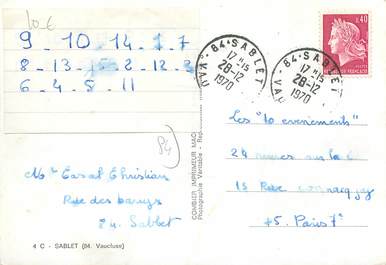 10 €
9 - 10 - 14 - 1 - 7
8 - 13 - 15 - 2 - 12 - 3
6 - 4 - 8 - 11
84
Casal Christian
Rue des barrys
84. Sablet
4 C - SABLET (84. Vaucluse)
COMBIER IMPRIMEUR MAC
Photographie Véritable - Rep
84 - SABLET
17 H 15
28-12
1970
VAU
84 - SABLET
17 H 15
28-12
1970
VAU
0,40
FRANCAISE
Les "10 evenements"
24 heures sur la
15 Rue
75. Paris 7e